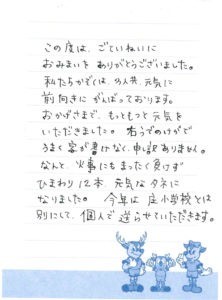 この度は、ごていねいに
おみまいを ありがとうございました。
私たちかぞくは、の人共、元気に
前向きに がんばっております。
おかげさまで、もっともっと元気を
いただきました。右うでのけがで
うまく字が書けなく、申し訳ありません。
なんと、火事にもまったく負けず
ひまわり12本、元気なタネに
なりました。 今年は 庄小学校とは
別にして、個人で 送らせていただきます。